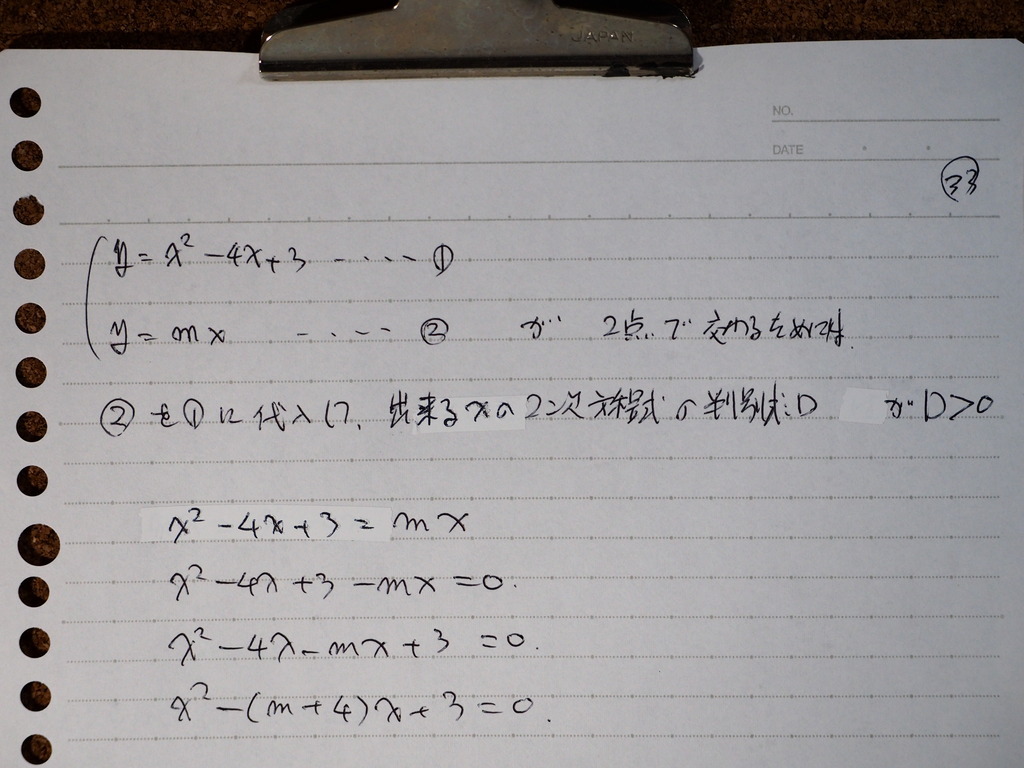 JAPAN
NO.
DATE
33
y = x² - 4x + 3 ----- ①
y = mx ----- ② が 2点で交わるためには
②を①に代入して、出来るxの2次方程式の判別式:D が D>0
x² - 4x + 3 = mx
x² - 4x + 3 - mx = 0.
x² - 4x - mx + 3 = 0.
x² - (m + 4)x + 3 = 0.